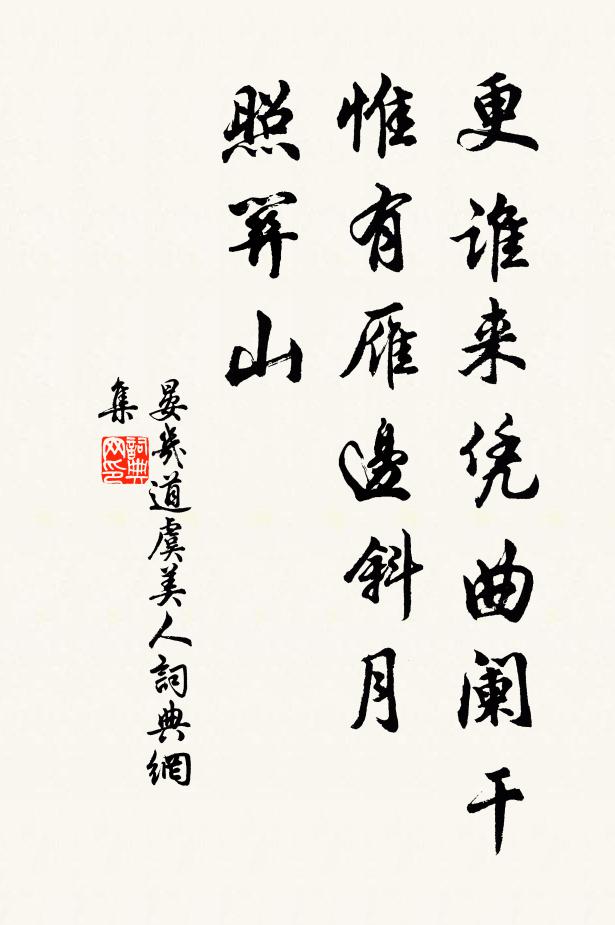 更谁来凭曲阑干
惟有雁邊斜月
照關山
晏幾道虞美人詞典網
集
詞典网印